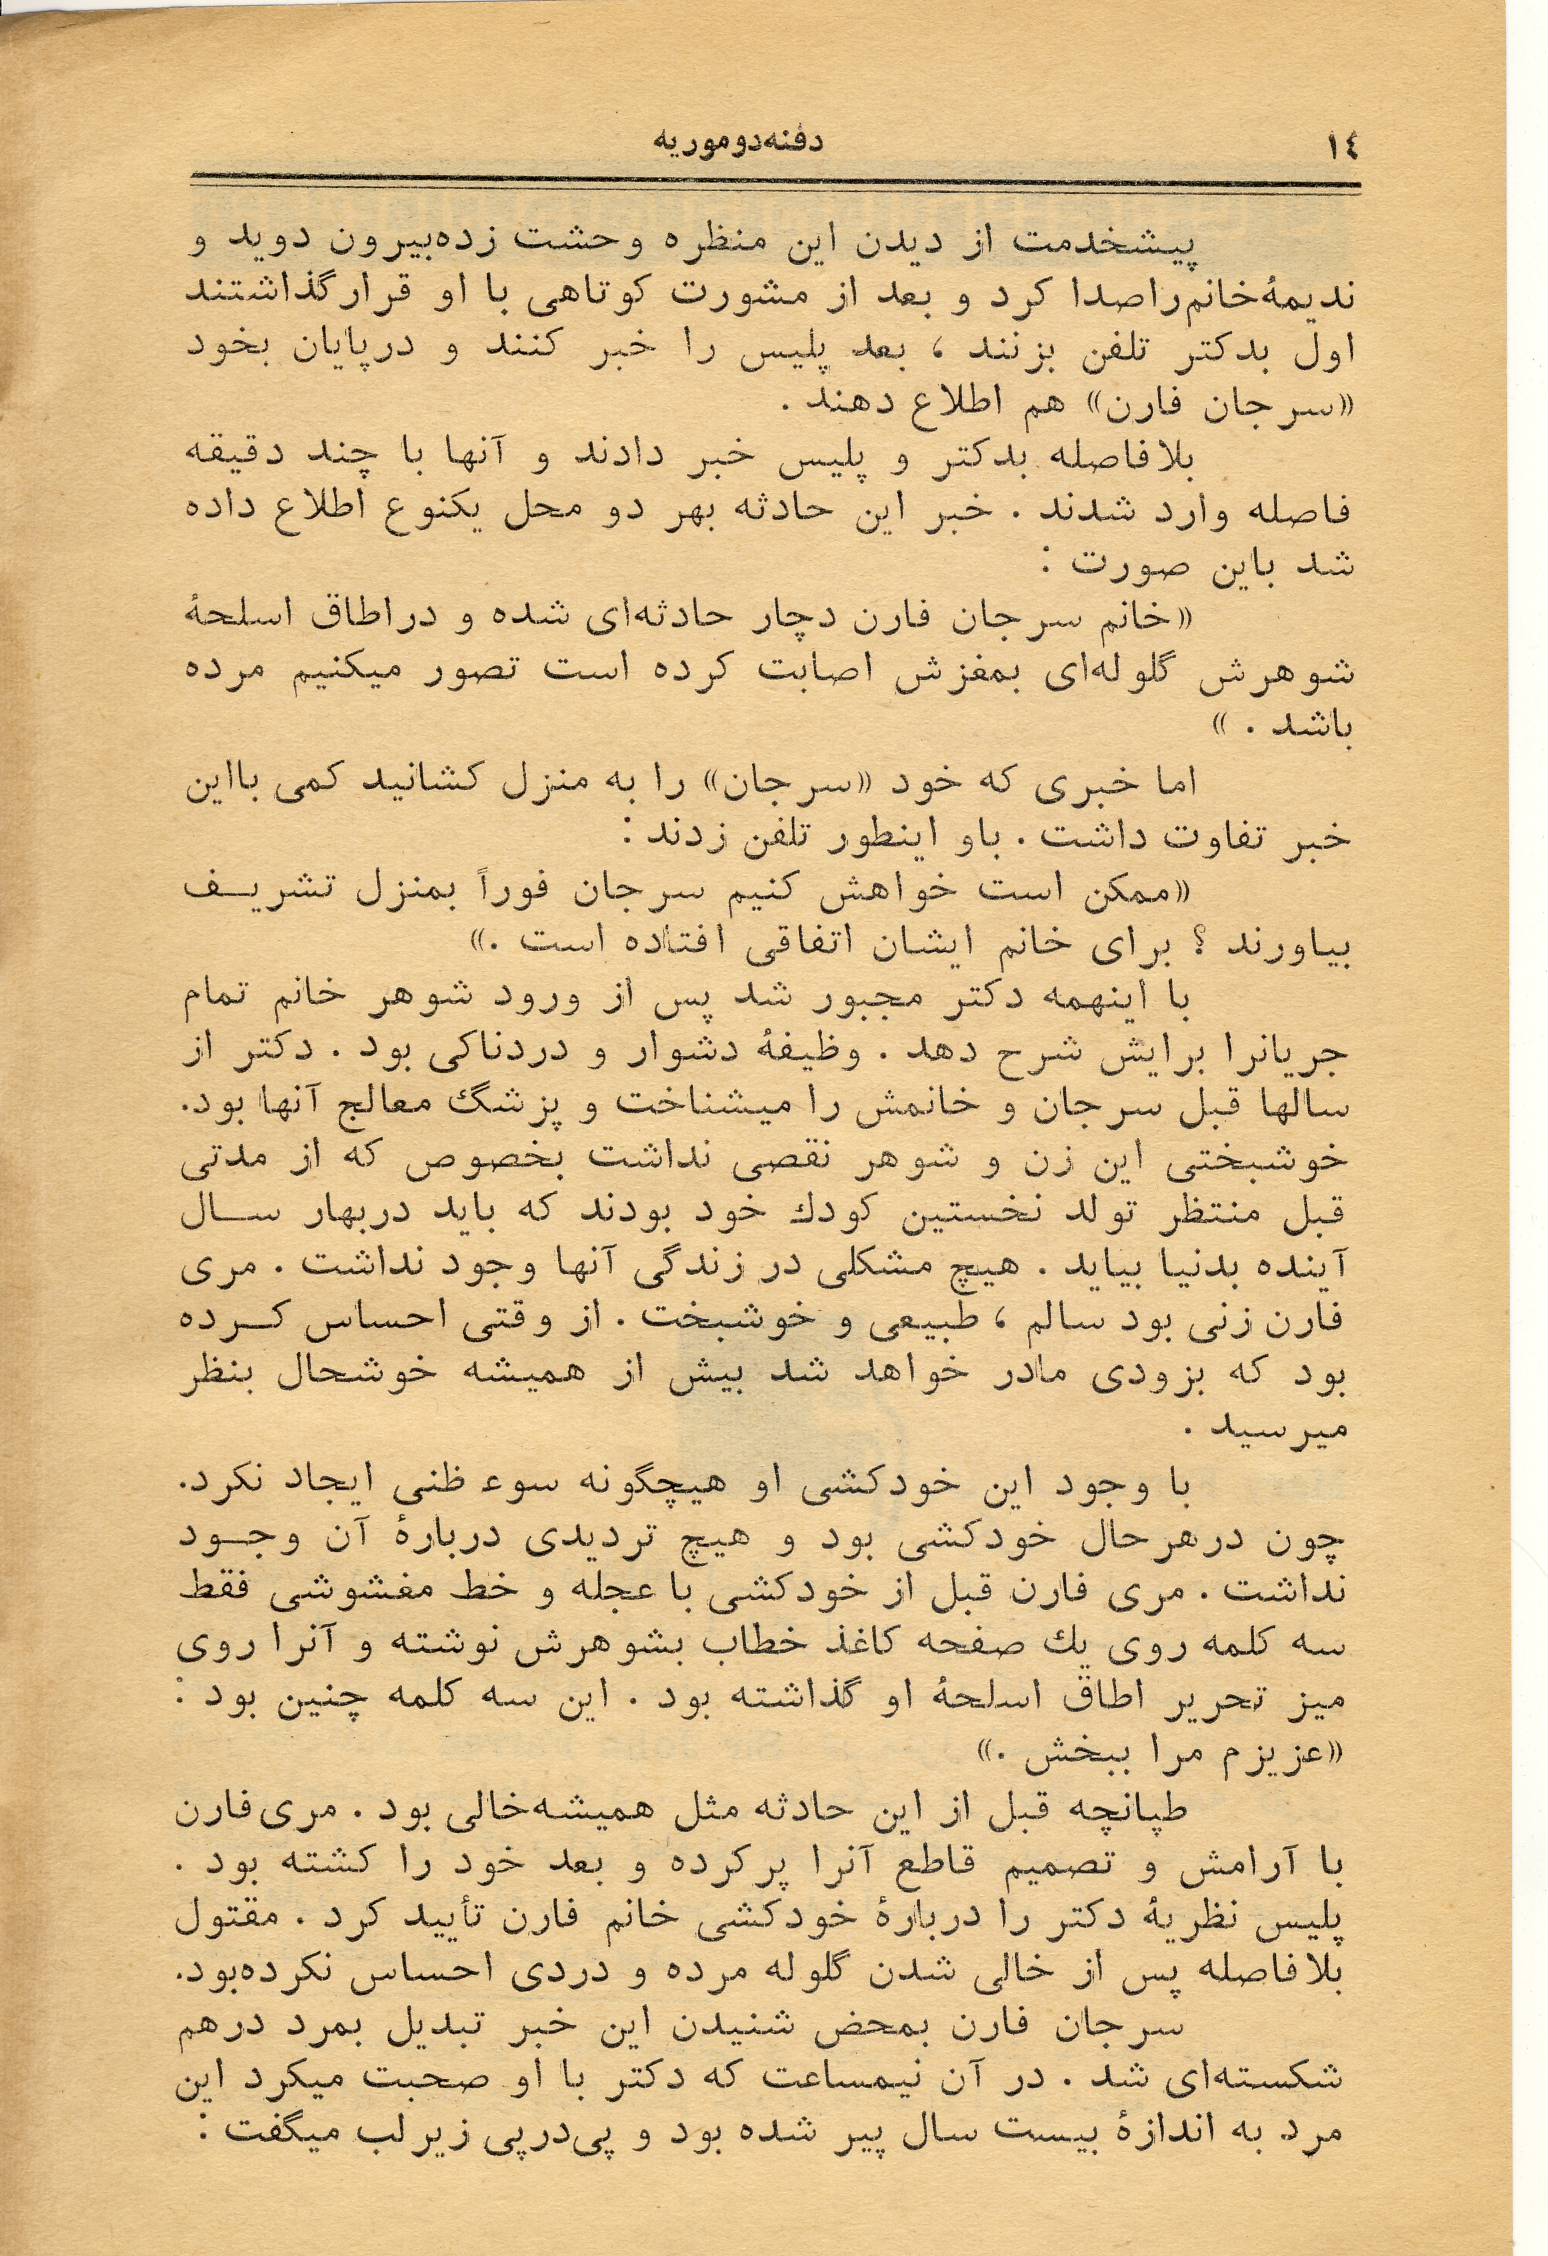 ١٤
دفنه‌دوموریه
پیشخدمت از دیدن این منظره وحشت زده‌بیرون دوید و
ندیمهٔ‌خانم‌راصدا کرد و بعد از مشورت کوتاهی با او قرارگذاشتند
اول بدکتر تلفن بزنند ، بعد پلیس را خبر کنند و درپایان بخود
«سرجان فارن» هم اطلاع دهند .
بلافاصله بدکتر و پلیس خبر دادند و آنها با چند دقیقه
فاصله وارد شدند . خبر این حادثه بهر دو محل یکنوع اطلاع داده
شد باین صورت :
«خانم سرجان فارن دچار حادثه‌ای شده و دراطاق اسلحهٔ
شوهرش گلوله‌ای بمغزش اصابت کرده است تصور میکنیم مرده
باشد . »
اما خبری که خود «سرجان» را به منزل کشانید کمی بااین
خبر تفاوت داشت . باو اینطور تلفن زدند :
«ممکن است خواهش کنیم سرجان فوراً بمنزل تشریــف
بیاورند ؟ برای خانم ایشان اتفاقی افتاده است .»
با اینهمه دکتر مجبور شد پس از ورود شوهر خانم تمام
جریانرا برایش شرح دهد . وظیفهٔ دشوار و دردناکی بود . دکتر از
سالها قبل سرجان و خانمش را میشناخت و پزشگ معالج آنها بود.
خوشبختی این زن و شوهر نقصی نداشت بخصوص که از مدتی
قبل منتظر تولد نخستین کودك خود بودند که باید دربهار ســال
آینده بدنیا بیاید . هیچ مشکلی در زندگی آنها وجود نداشت . مری
فارن زنی بود سالم ، طبیعی و خوشبخت . از وقتی احساس کــرده
بود که بزودی مادر خواهد شد بیش از همیشه خوشحال بنظر
میرسید .
با وجود این خودکشی او هیچگونه سوء ظنی ایجاد نکرد.
چون درهرحال خودکشی بود و هیچ تردیدی دربارهٔ آن وجــود
نداشت . مری فارن قبل از خودکشی با عجله و خط مغشوشی فقط
سه کلمه روی یك صفحه کاغذ خطاب بشوهرش نوشته و آنرا روی
میز تحریر اطاق اسلحهٔ او گذاشته بود . این سه کلمه چنین بود :
«عزیزم مرا ببخش .»
طپانچه قبل از این حادثه مثل همیشه‌خالی بود . مری‌فارن
با آرامش و تصمیم قاطع آنرا پرکرده و بعد خود را کشته بود .
پلیس نظریهٔ دکتر را دربارهٔ خودکشی خانم فارن تأیید کرد . مقتول
بلافاصله پس از خالی شدن گلوله مرده و دردی احساس نکرده‌بود.
سرجان فارن بمحض شنیدن این خبر تبدیل بمرد درهم
شکسته‌ای شد . در آن نیمساعت که دکتر با او صحبت میکرد این
مرد به اندازهٔ بیست سال پیر شده بود و پی‌درپی زیرلب میگفت :